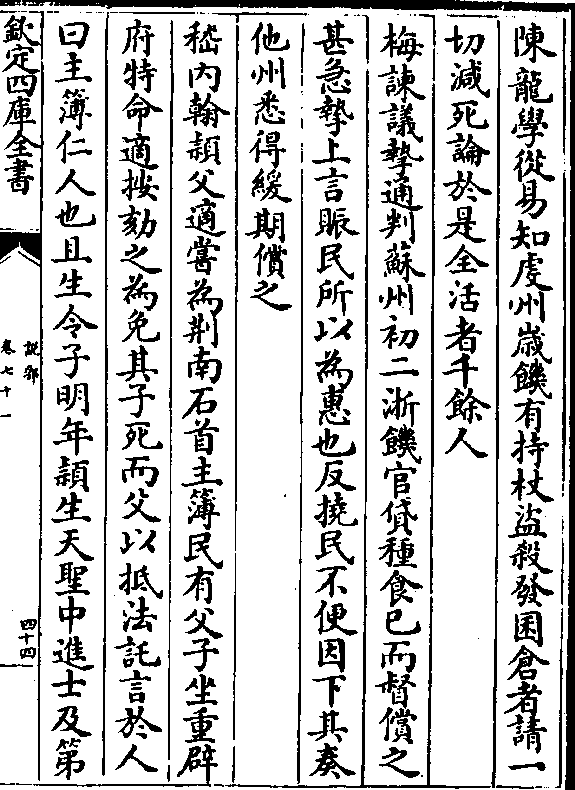 陳龍學從易知虔州歳饑有持杖盜殺發囷倉者請一
切減死論於是全活者千餘人
梅諫議摯通判蘇州初二浙饑官貸種食已而督償之
甚急摯上言賑民所以為惠也反撓民不便因下其奏
他州悉得緩期償之
嵇内翰頴父適嘗為荆南石首主簿民有父子坐重辟
府特命適按劾之為免其子死而父以抵法託言於人
曰主簿仁人也且生令子明年頴生天聖中進士及第
欽定四庫全書
説郛
卷七十一
四十四